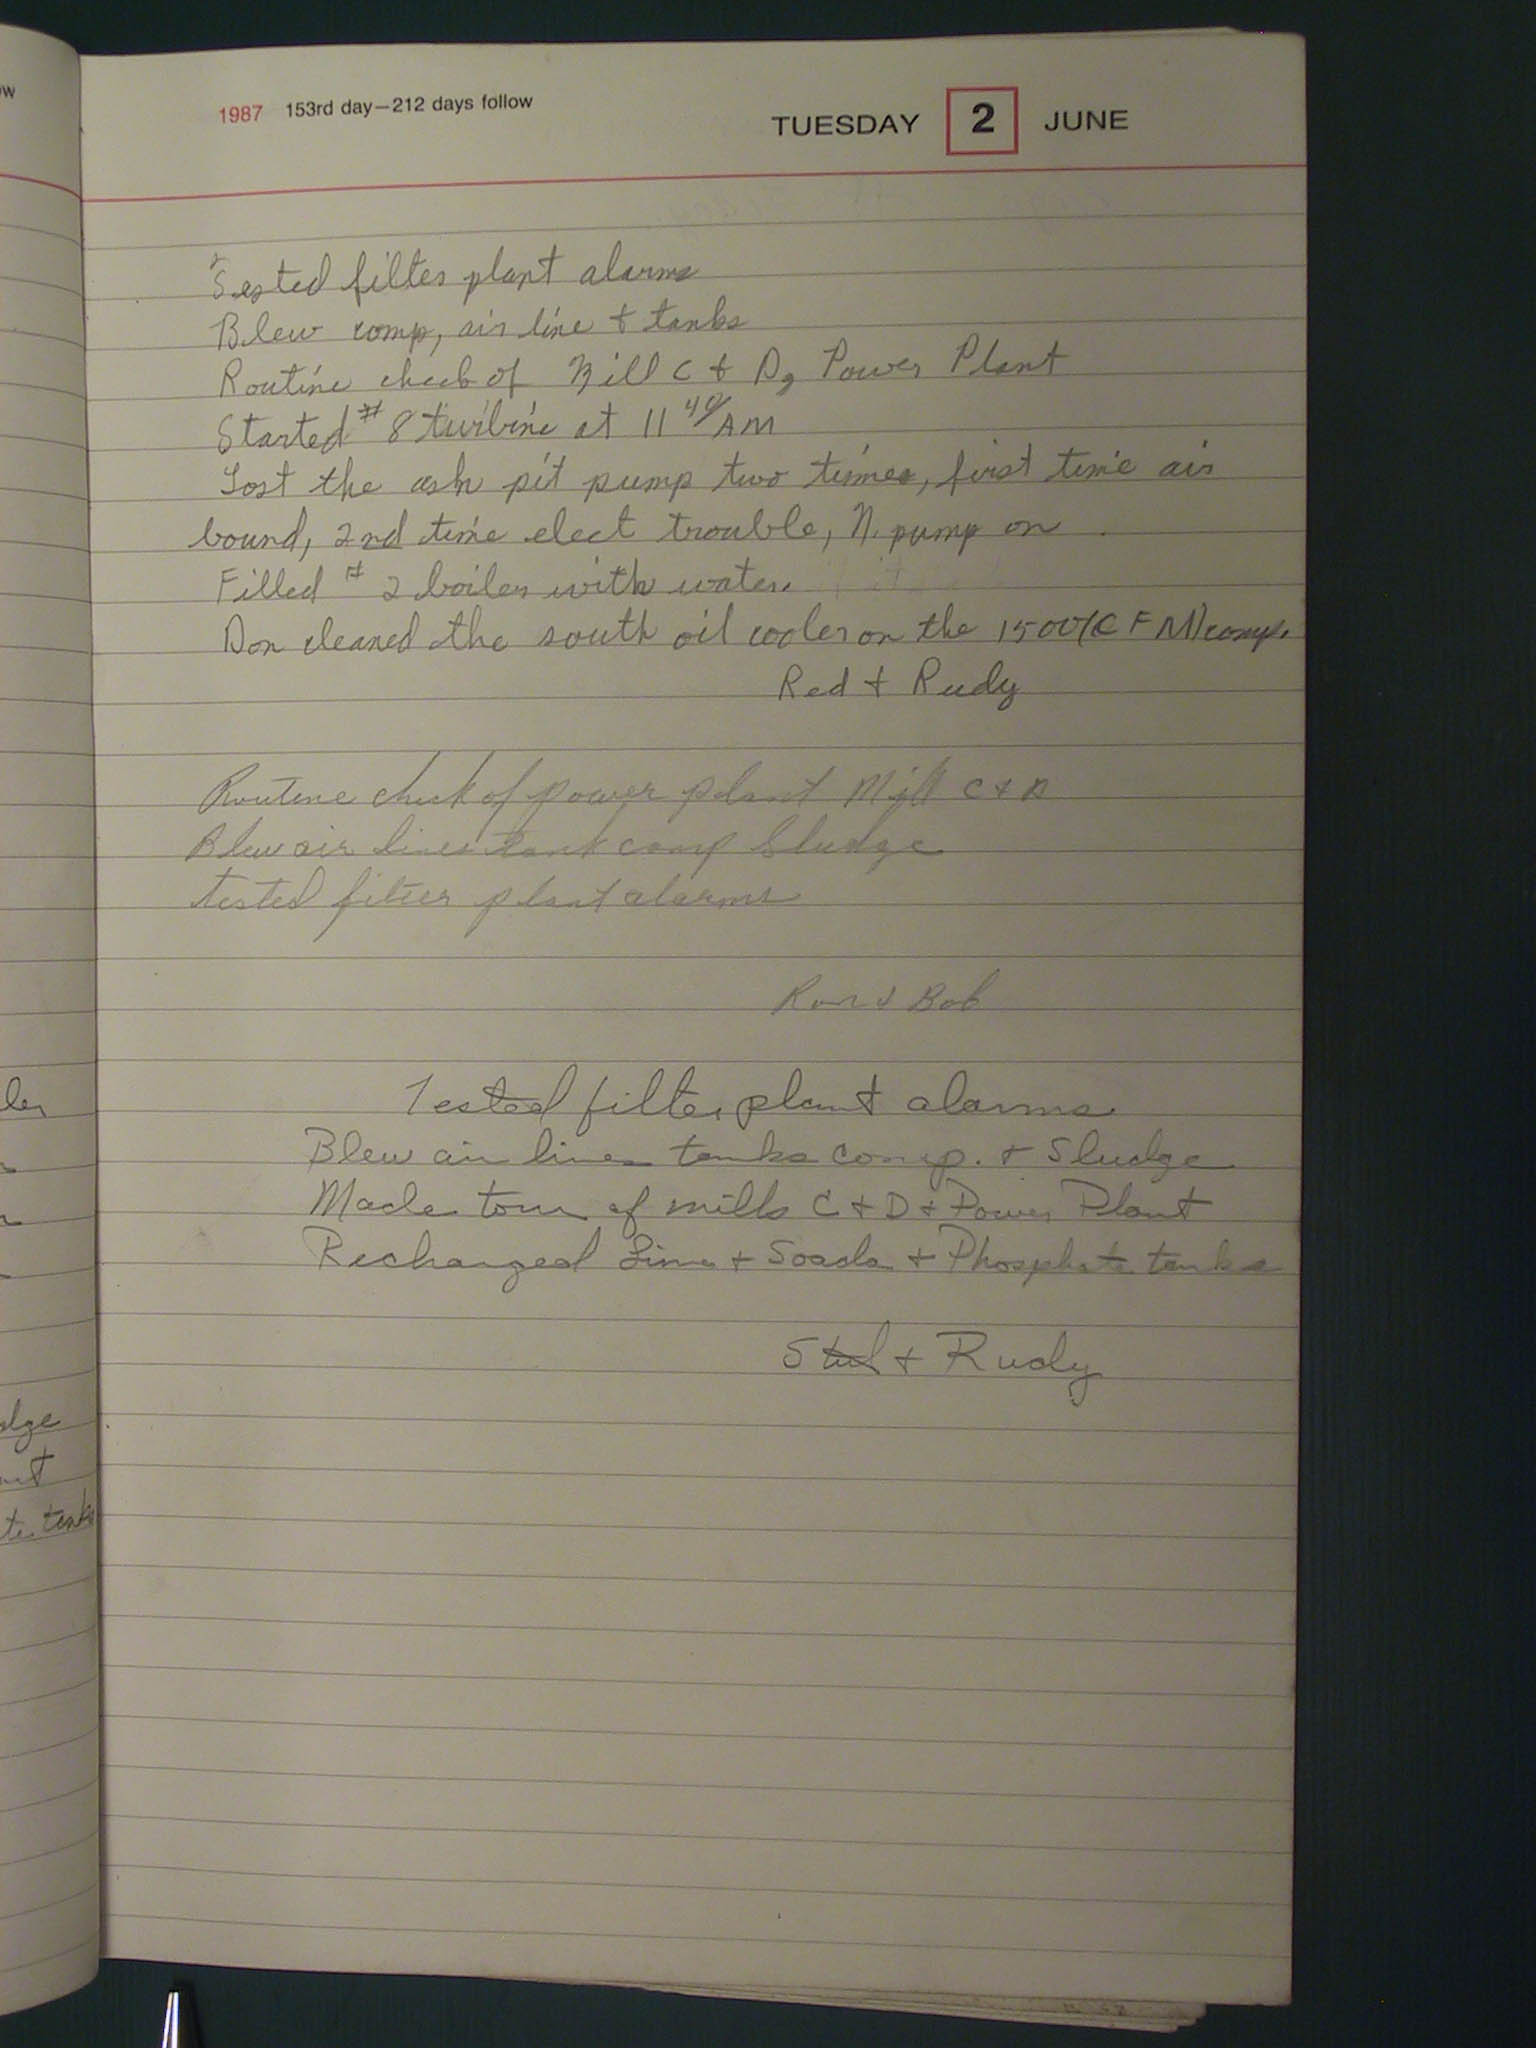 ow
1987 153rd day—212 days follow
TUESDAY 2 JUNE
Tested filter plant alarms
Blew comp, air line + tanks
Routine check of Mill C + D, Power Plant
Started # 8 turbine at 11 40/AM
Lost the ash pit pump two times, first time air
bound, 2nd time elect trouble, N. pump on
Filled # 2 boiler with water.
Don cleaned the south oil cooler on the 1500 (CFM) comp.
Red + Rudy
Routine check of power plant Mill C + D
Blew air lines tank comp Sludge
tested filter plant alarms
Ron + Bob
Tested filter plant alarms
Blew air lines tanks comp. + Sludge
Made tour of mills C + D + Power Plant
Recharged Lime + Soada + Phosphate tanks
+ Rudy
ler
dge
te tanks